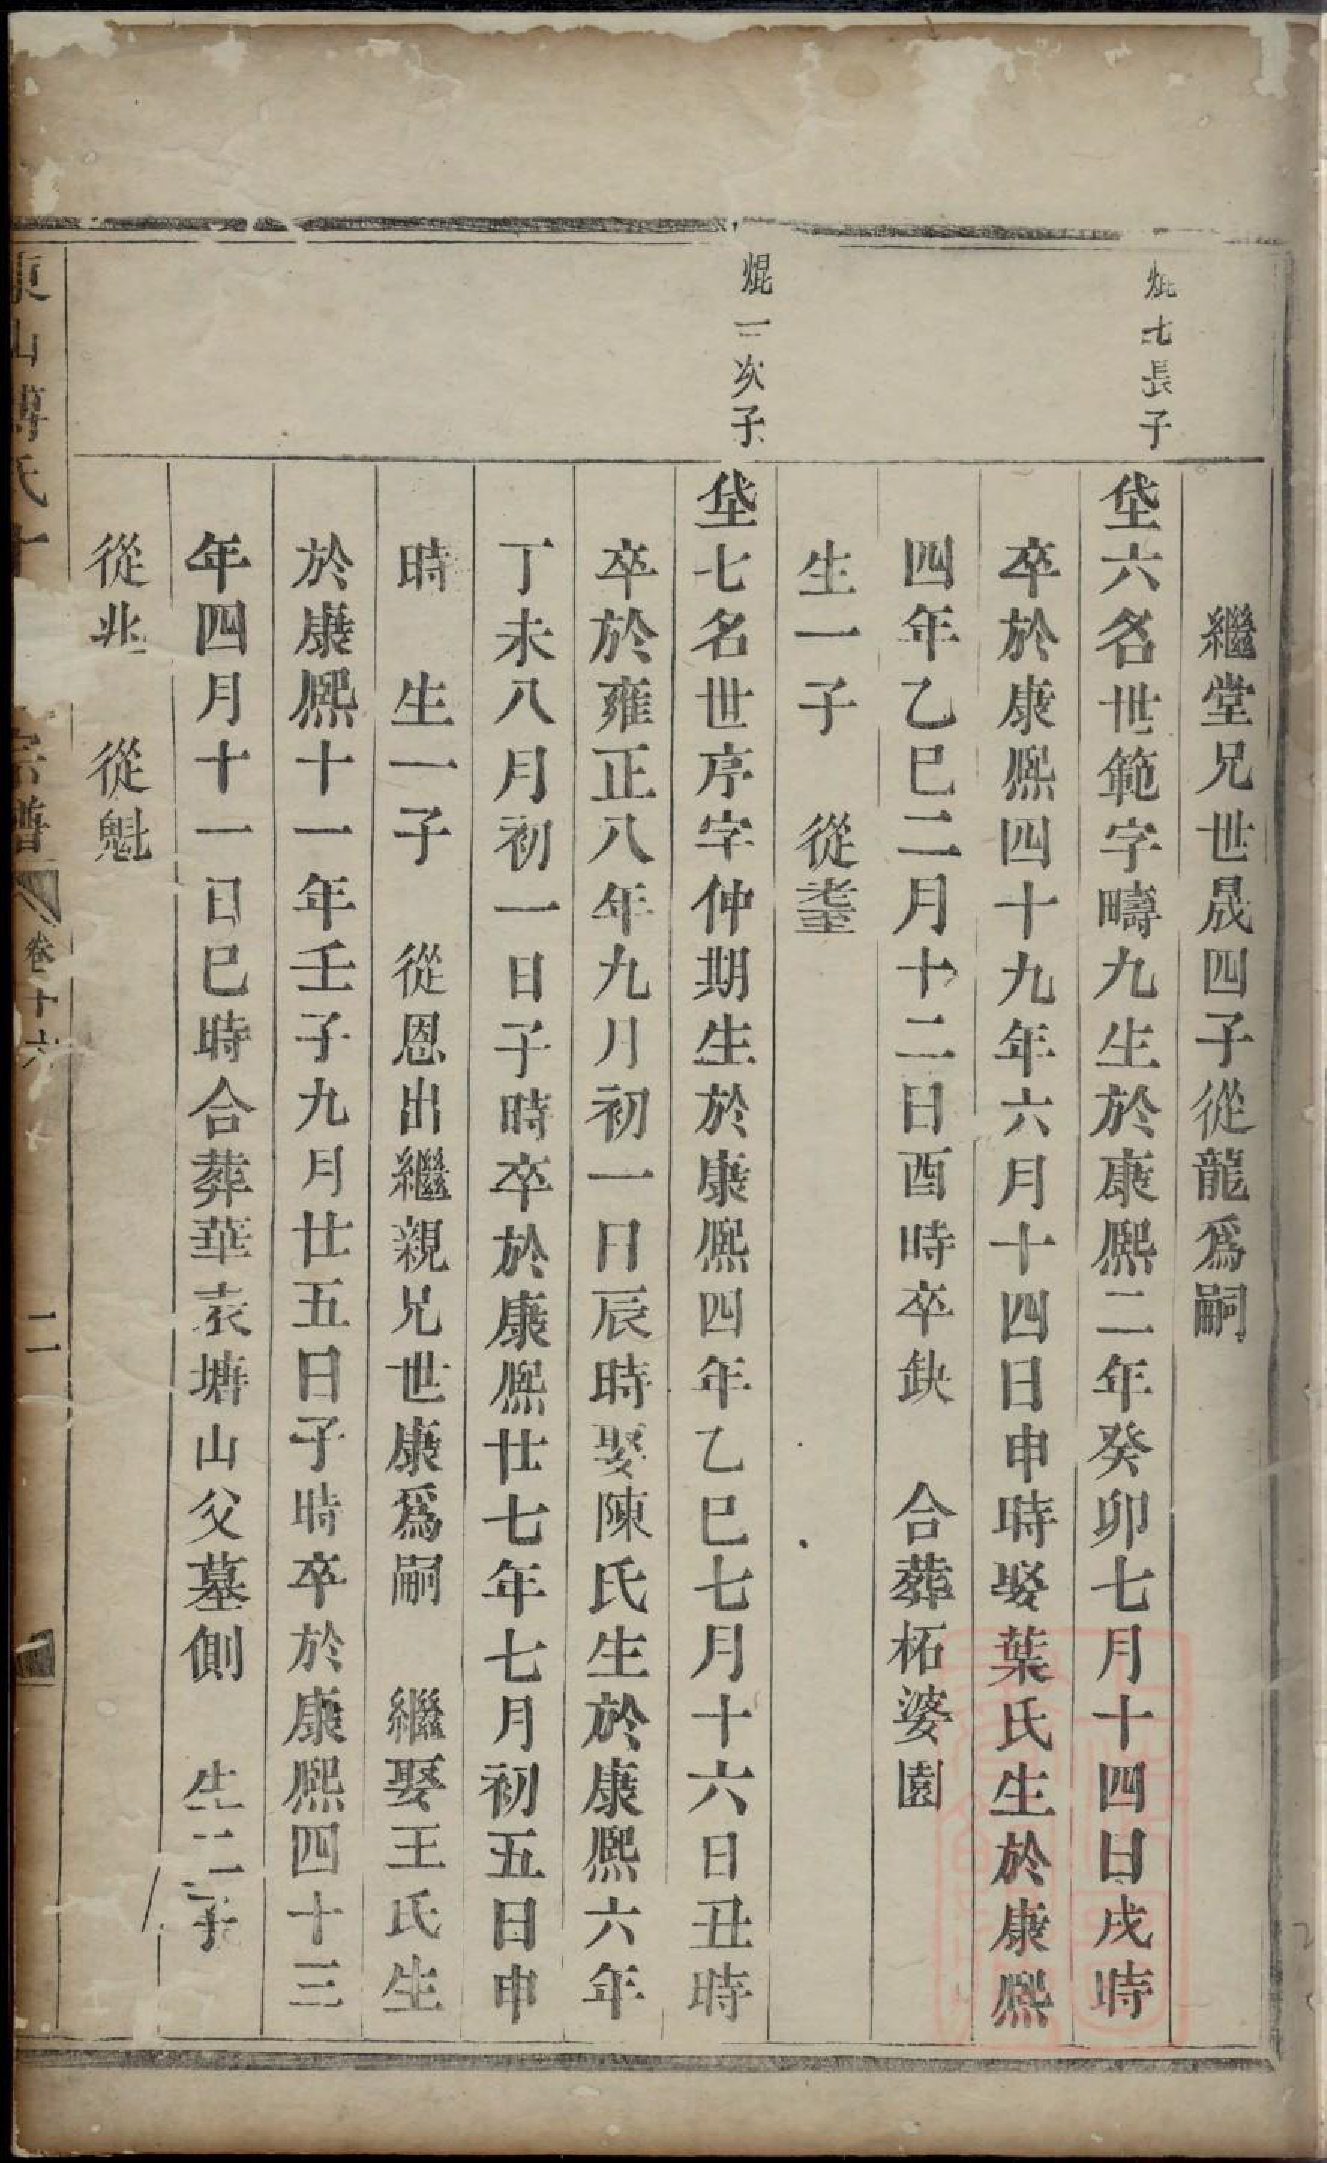 繼堂兄世晟四子從龍爲嗣
焜七長子
垡六名世範字疇九生於康熙二年癸卯七月十四日戌時
卒於康熙四十九年六月十四日申時娶葉氏生於康熙
四年乙巳二月十二日酉時卒缺　合葬柘婆園
生一子　從
焜一次子
垡七名世序字仲期生於康熙四年乙巳七月十六日丑時
卒於雍正八年九月初一日辰時娶陳氏生於康熙六年
丁未八月初一日子時卒於康熙廿七年七月初五日申
時　生一子　從恩出繼親兄世康爲嗣　繼娶王氏生
於康熙十一年壬子九月廿五日子時卒於康熙四十三
年四月十一日巳時合葬華表塘山父墓側　生二子
從兆　從魁
東山傅氏　宗譜　卷十六　二